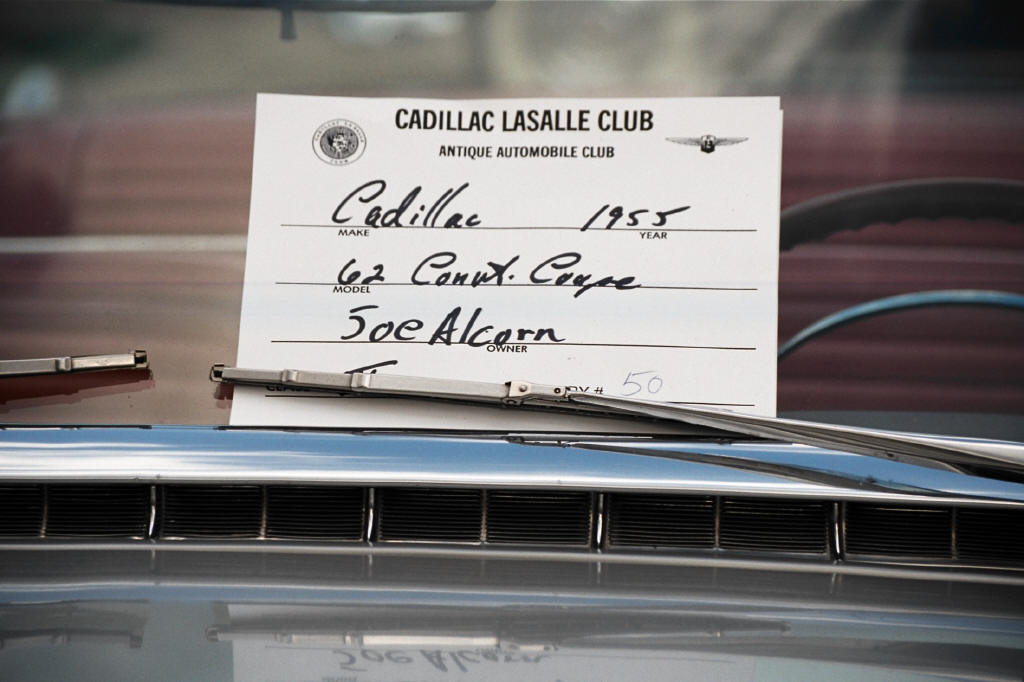 CADILLAC LASALLE CLUB
ANTIQUE AUTOMOBILE CLUB
Cadillac 1955
MAKE YEAR
62 Convt. Coupe
MODEL
Joe Alcorn
OWNER
# 50